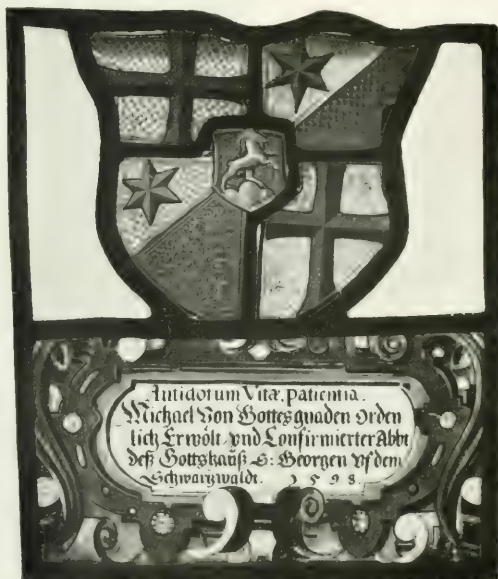 Antidotum Vitæ, patientia.
Michael Von Gottes gnaden Orden
lich Erwölt vnd Confirmierter Abbt
deß Gottshauß S: Georgen vf dem
Schwarzwaldt. 1598.